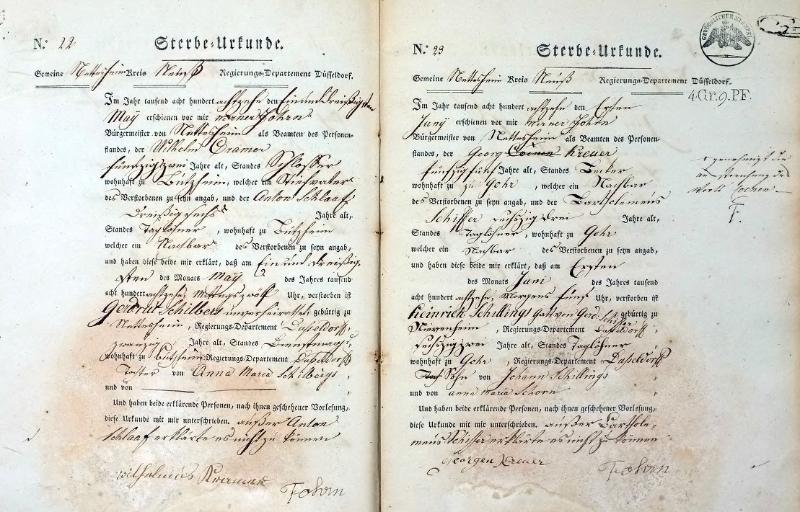 N. 22 Sterbe-Urkunde.
Gemeine Nettesheim Kreis Neuß Regierungs-Departement Düsseldorf.
Im Jahr tausend acht hundert achtzehn den ein und dreißigsten
May erschienen vor mir
Bürgermeister von Nettesheim als Beamten des Personen-
standes, der Wilhelm Cramer
Jahre alt, Standes Schlosser
wohnhaft zu Bützheim, welcher ein Stiefvater
des Verstorbenen zu seyn angab, und der Anton Schlaaf
Dreißig sechs Jahre alt,
Standes Taglöhner, wohnhaft zu Bützheim
welcher ein Nachbar des Verstorbenen zu seyn angab,
und haben diese beide mir erklärt, daß am Ein und dreißig-
sten des Monats May des Jahres tausend
acht hundert achtzehn Mittags zwölf Uhr, verstorben ist
unverheirathet gebürtig zu
Nettesheim, Regierungs-Departement Düsseldorf,
zwanzig Jahre alt, Standes Dienstmagd
wohnhaft zu Bützheim Regierungs-Departement Düsseldorf
Tochter von Anna Maria Schilbergs
und von
Und haben beide erklärende Personen, nach ihnen geschehener Vorlesung,
diese Urkunde mit mir unterschrieben. außer Anton
Schlaaf erklärte es nicht zu können
N. 23 Sterbe-Urkunde.
Gemeine Nettesheim Kreis Neuß Regierungs-Departement Düsseldorf.
4 Gr. 9. PF.
Im Jahr tausend acht hundert achtzehn den Ersten
Juny erschienen vor mir
Bürgermeister von Nettesheim als Beamten des Personen-
standes, der Georg Kreuer
fünfzig fünf Jahre alt, Standes
wohnhaft zu Gohr, welcher ein Nachbar
des Verstorbenen zu seyn angab, und der Bartholemeus
Schiffer sechszig drei Jahre alt,
Standes Taglöhner, wohnhaft zu Gohr
welcher ein Nachbar des Verstorbenen zu seyn angab,
und haben diese beide mir erklärt, daß am Ersten
des Monats Juni des Jahres tausend
acht hundert achtzehn, Morgens fünf Uhr, verstorben ist
Heinrich Schillings gebürtig zu
Nievenheim, Regierungs-Departement Düsseldorf
sechszig drei Jahre alt, Standes Taglöhner
wohnhaft zu Gohr, Regierungs-Departement Düsseldorf
Sohn von Johann Schillings
und von anna maria Schorn
Und haben beide erklärende Personen, nach ihnen geschehener Vorlesung,
diese Urkunde mit mir unterschrieben. außer Bartholo-
meus Schiffer erklärte es nicht zu können
Georgen Kreuer